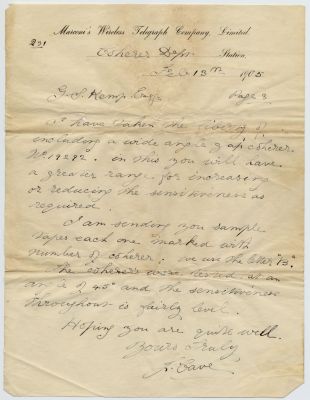 Marconi's Wireless Telegraph Company, Limited.
231
Coherer Dept Station,
Feb 13th 1905
G. S. Kemp Esqr Page 2
I have taken the liberty of
including a wide angle gap coherer
No 19292. in this you will have
a greater range for increasing
or reducing the sensitiveness as
required.
I am sending you sample
tapes each one marked with
number of coherer: we use the letter "B".
The coherers were tested at an
angle of 45° and the sensitiveness
throughout is fairly level.
Hoping you are quite well.
Yours truly,
J. Cave